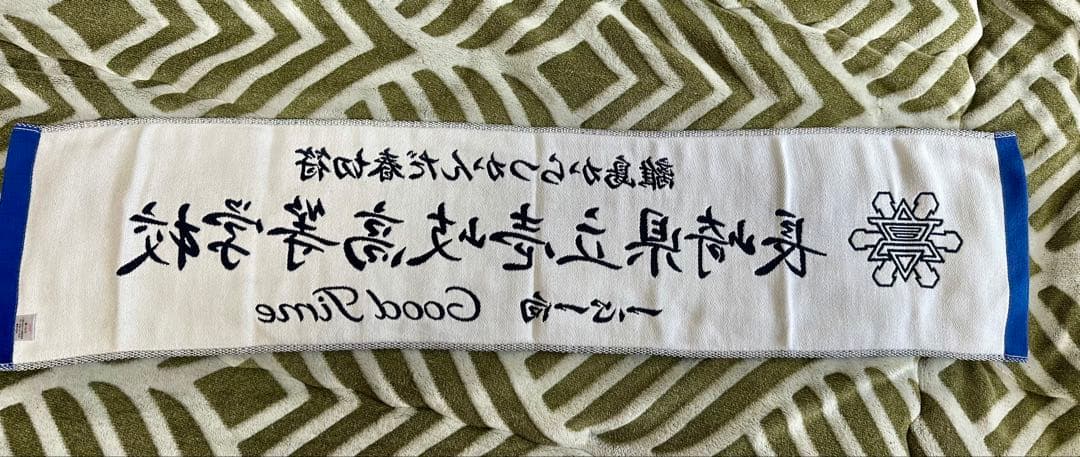 離島からつかんだ春切符
長崎県立壱岐高等学校
一心一向 Good Time